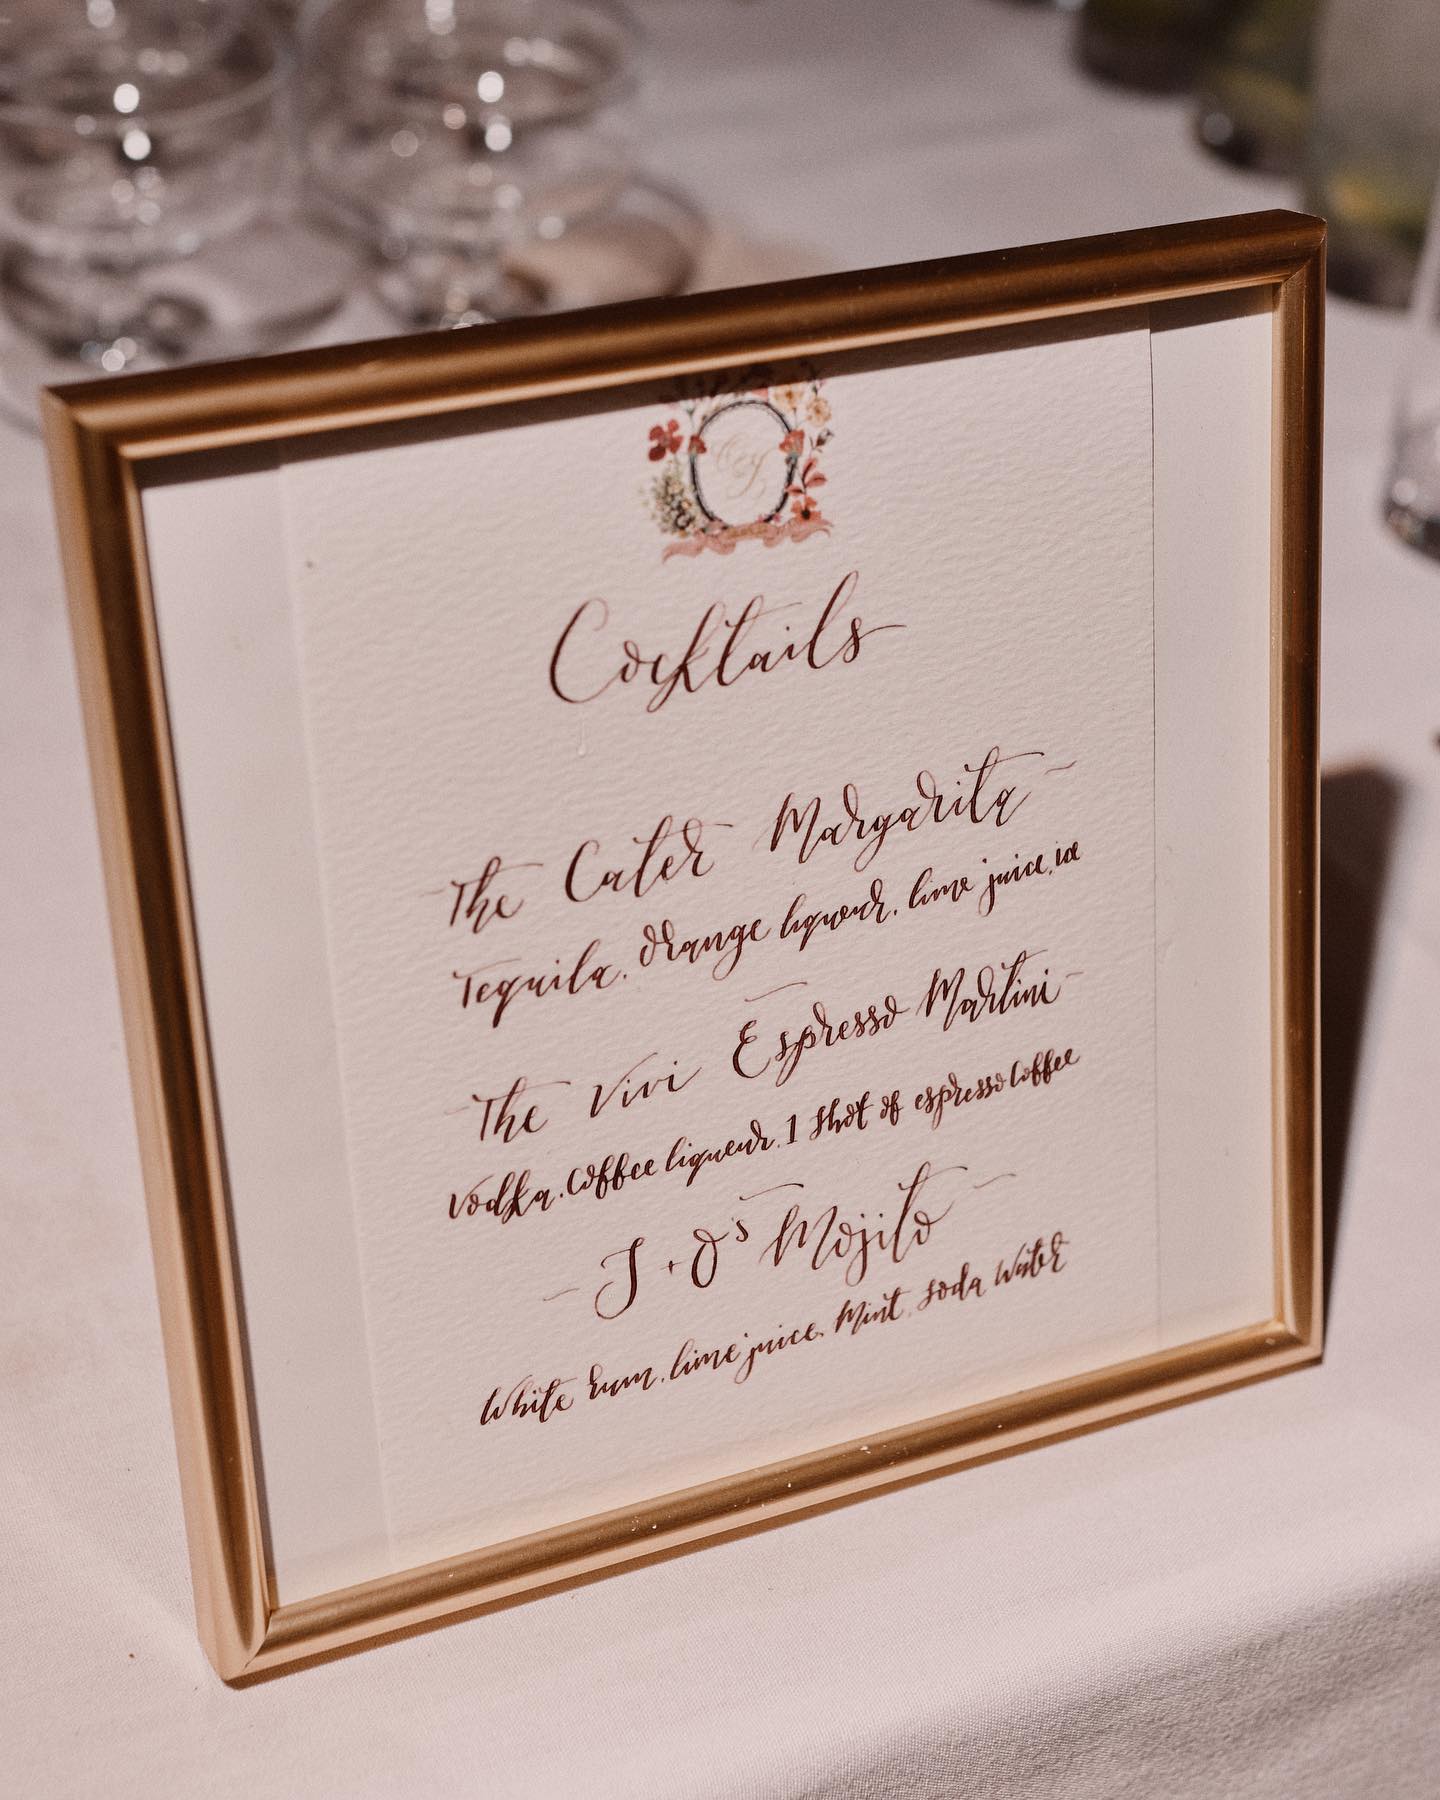 Cocktails
The Cater Margarita
Tequila. Orange liqueur. lime juice. ice
The Vivi Espresso Martini
Vodka. Coffee liqueur. 1 shot of espresso Coffee
J + O's Mojito
White rum. lime juice. Mint. soda Water